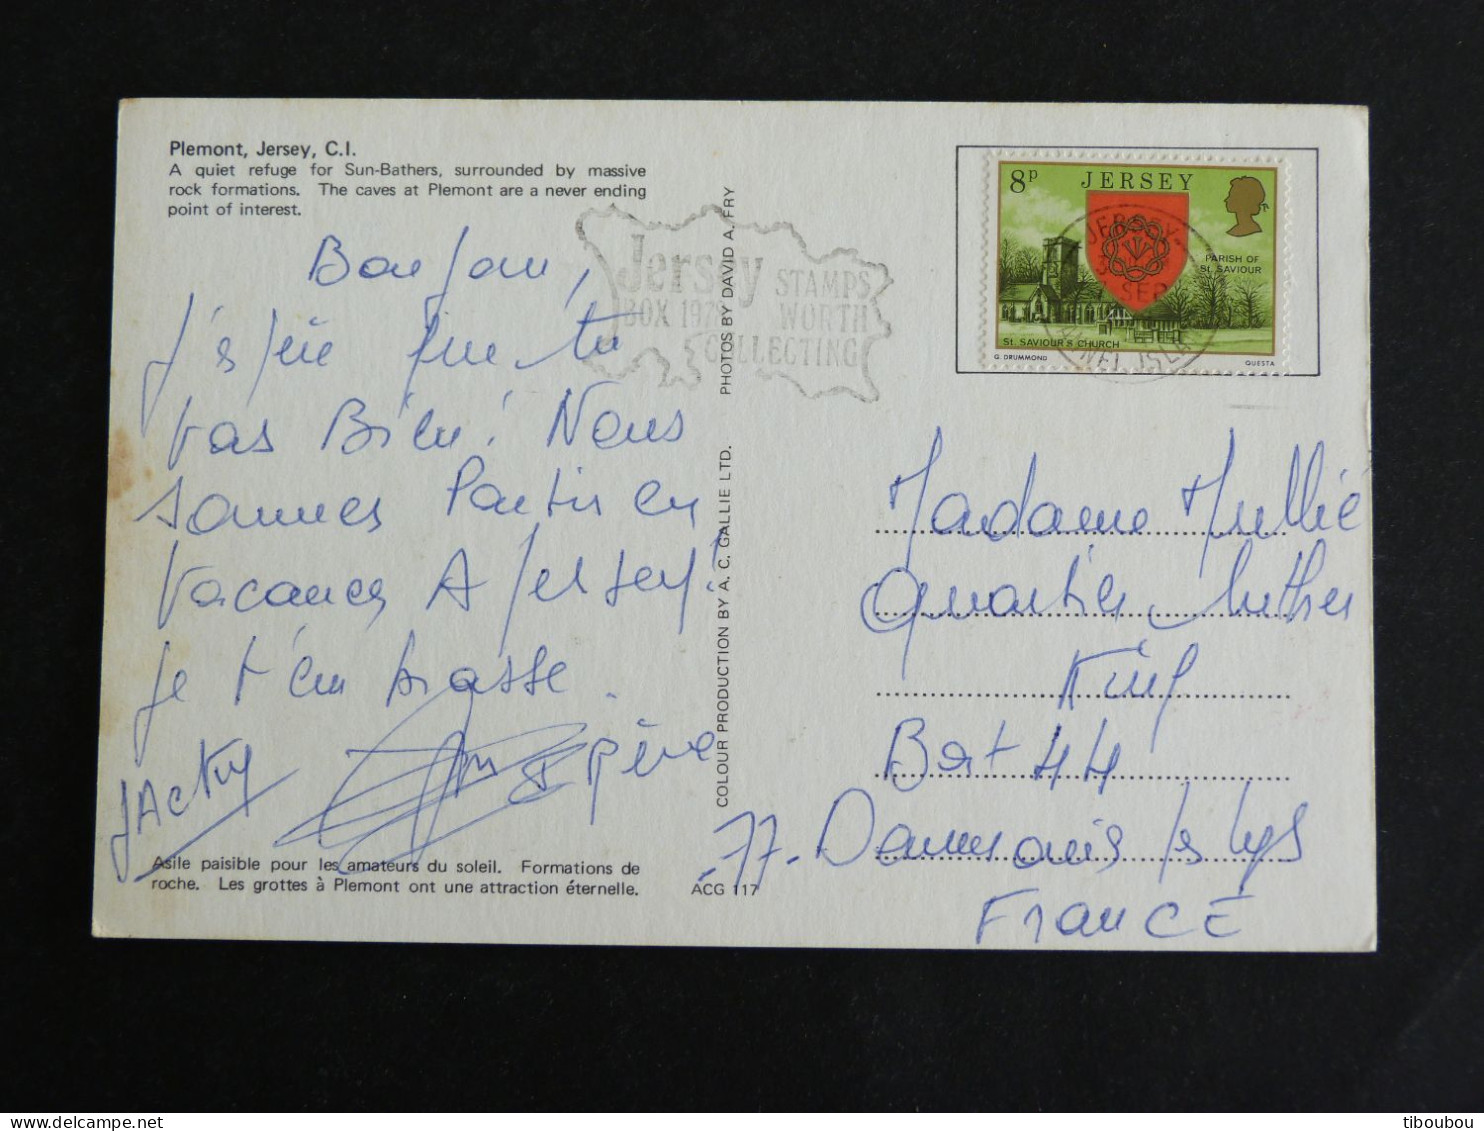 Plemont, Jersey, C.I.
A quiet refuge for Sun-Bathers, surrounded by massive
rock formations. The caves at Plemont are a never ending
point of interest.
Bonjour,
J'espère que tu
vas Bien! Nous
sommes Partis en
Vacances A Jersey!
je t'embrasse.
JAcky
Père
Asile paisible pour les amateurs du soleil. Formations de
roche. Les grottes à Plemont ont une attraction éternelle.
ACG 117
COLOUR PRODUCTION BY A. C. GALLIE LTD. PHOTOS BY DAVID A. FRY
Jersey STAMPS
BOX WORTH
COLLECTING
8P JERSEY
PARISH OF
St. SAVIOUR
St. SAVIOUR'S CHURCH
G. DRUMMOND QUESTA
JERSEY
SEP
Madame Mullié
Quartier Luther
King
Bat 44
77. Dammarie les Lys
FRANCE
tiboubou